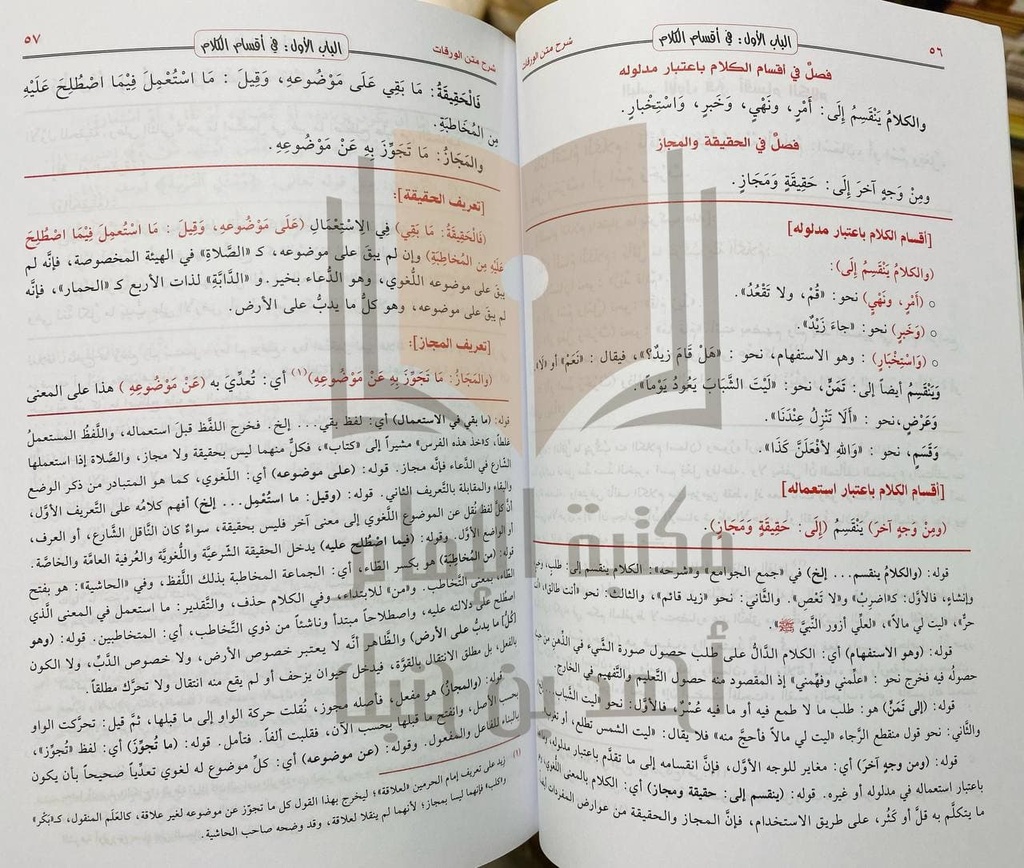 ٥٦
الباب الأول: في أقسام الكلام
شرح متن الورقات
فصلٌ في أقسام الكلام باعتبار مدلوله
والكلامُ يَنْقَسِمُ إِلَى: أَمْرٍ، وَنَهْيٍ، وَخَبَرٍ، وَاسْتِخْبارٍ.
فصلٌ في الحقيقة والمجاز
ومِنْ وَجهٍ آخَرَ إِلَى: حَقِيقَةٍ وَمَجَازٍ.
[أقسام الكلام باعتبار مدلوله]
(والكلامُ يَنْقَسِمُ إِلَى):
○ (أَمْرٍ، ونَهْيٍ) نحو: «قُمْ، ولا تَقْعُدْ».
○ (وخَبرٍ) نحو: «جاءَ زَيْدٌ».
○ (وَاسْتِخْبارٍ) : وهو الاستفهام، نحو : «هَلْ قَامَ زيدٌ؟»، فيقال : «نَعَمْ» أو «لَا».
وَيَنْقَسِمُ أيضاً إلى: تَمَنٍّ، نحو: «لَيْتَ الشَّبَابَ يَعُودُ يَوْماً».
وَعَرْضٍ، نحو: «أَلَا تَنْزِلُ عِنْدَنَا».
وَقَسَمٍ، نحو: «وَاللهِ لَأَفْعَلَنَّ كَذَا».
[أقسام الكلام باعتبار استعماله]
(ومِنْ وَجهٍ آخَرَ) يَنْقَسِمُ (إِلَى: حَقِيقَةٍ ومَجَازٍ).
قوله: (والكلامُ ينقسم... إلخ) في «جمع الجوامع» و«شرحه»: الكلام ينقسم إلى: طلب، وخبر،
وإنشاءٍ، فالأوَّل: كـ«اضربْ» و«لا تَعْصِ». والثَّاني: نحو «زيد قائم»، والثالث: نحو «أنت طالق»،
حرٌّ»، «ليت لي مالاً»، «لعلّي أزور النَّبيَّ ﷺ».
قوله: (وهو الاستفهام) أي: الكلام الدَّالُّ على طلب حصول صورة الشَّيء في الذِّهن من حيث
حصوله فيه فخرج نحو : «علِّمني وفهِّمني» إذ المقصود منه حصول التَّعليم والتَّفهيم في الخارج.
قوله: (إلى تَمَنٍّ) هو: طلب ما لا طمع فيه أو ما فيه عُسْرٌ، فالأوَّل: نحو «ليت الشَّباب
والثَّاني: نحو قول منقطع الرَّجاء «ليت لي مالاً فأحجَّ منه» فلا يقال: «ليت الشمس تطلع، أو تغرب
قوله: (ومن وجهٍ آخَرَ) أي: مغاير للوجه الأوَّل، فإنَّ انقسامه إلى ما تقدَّم باعتبار مدلوله،
باعتبار استعماله في مدلوله أو غيره. قوله: (ينقسم إلى: حقيقة ومجاز) أي: الكلام بالمعنى اللُّغوي،
ما يتكلَّم به قلَّ أو كَثُر، على طريق الاستخدام، فإنَّ المجاز والحقيقة من عوارض المفردات
٥٧
الباب الأول: في أقسام الكلام
شرح متن الورقات
فَالْحَقِيقَةُ: مَا بَقِي عَلَى مَوْضُوعِهِ، وَقِيلَ : مَا اسْتُعْمِلَ فِيمَا اصْطُلِحَ عَلَيْهِ
مِن المُخَاطَبَةِ.
والمَجَازُ: مَا تَجَوِّزَ بِهِ عَنْ مَوْضُوعِهِ.
[تعريف الحقيقة]:
(فَالْحَقِيقَةُ: مَا بَقِي) فِي الاسْتِعْمَالِ (عَلَى مَوْضُوعِهِ، وَقِيلَ : مَا اسْتُعْمِلَ فِيمَا اصْطُلِحَ
عَلَيْهِ مِن المُخَاطَبَةِ) وإن لم يبقَ على موضوعه، كـ «الصَّلاةِ» في الهيئة المخصوصة، فإنَّه لم
يبقَ على موضوعه اللُّغوي، وهو الدُّعاء بخير. و «الدَّابَّةِ» لذات الأربع كـ «الحمار»، فإنَّه
لم يبقَ على موضوعه، وهو كلُّ ما يدبُّ على الأرض.
[تعريف المجاز]:
(والمَجَازُ: مَا تَجَوِّزَ بِهِ عَنْ مَوْضُوعِهِ)(١) أي: تُعدِّيَ به (عَنْ مَوْضُوعِهِ) هذا على المعنى
قوله: (ما بقي في الاستعمال) أي: لفظ بقي... إلخ. فخرج اللَّفظ قبلَ استعماله، واللَّفظُ المستعملُ
غلطاً، كـ«خذ هذه الفرس» مشيراً إلى «كتاب»، فكلٌّ منهما ليس بحقيقة ولا مجاز، والصَّلاة إذا استعملها
الشَّارع في الدُّعاء فإنَّه مجاز. قوله: (على موضوعه) أي: اللُّغوي، كما هو المتبادر من ذكر الوضع
والبقاء والمقابلة بالتَّعريف الثاني. قوله: (وقيل: ما استُعْمِل... إلخ) أفهم كلامُه على التَّعريف الأوَّل،
أنَّ كلَّ لفظٍ نُقل عن الموضوع اللُّغوي إلى معنى آخر فليس بحقيقة، سواءٌ كان النَّاقل الشَّارع، أو العرف،
أو الواضع الأوَّل. وقوله: (فيما اصْطُلح عليه) يدخل الحقيقة الشَّرعيَّة واللُّغويَّة والعُرفية العامَّة والخاصَّة.
قوله: (من المُخاطِبَة) هو بكسر الطَّاء، أي: الجماعة المخاطبة بذلك اللَّفظ، وفي «الحاشية»: هو بفتح
الطَّاء، بمعنى التَّخاطب. و«من» للابتداء، وفي الكلام حذف، والتَّقدير: ما استعمل في المعنى الَّذي
اصطُلح على دلالته عليه، واصطلاحاً مبتدأ وناشئاً من ذوي التَّخاطب، أي: المتخاطبين. قوله: (وهو
[كُلُّ] ما يدبُّ على الأرض) والظَّاهر أنَّه لا يعتبر خصوص الأرض، ولا خصوص الدَّبِّ، ولا الكون
بالفعل، بل مطلق الانتقال بالقوَّة، فيدخل حيوان يزحف أو لم يقع منه انتقال ولا تحرَّك مطلقاً.
قوله: (والمجازُ) هو مفعل، فأصله مجوَز، نُقلت حركة الواو إلى ما قبلها، ثمَّ قيل: تحرَّكت الواو
بحسب الأصل، وانفتح ما قبلها بحسب الآن، فقلبت ألفاً. فتأمل. قوله: (ما تُجوِّزَ) أي: لفظ «تُجوِّز»،
بالبناء للفاعل والمفعول. وقوله: (عن موضوعه) أي: كلُّ موضوع له لغوي تعدِّياً صحيحاً بأن يكون
(١) زيد على تعريف إمام الحرمين «العلاقة»؛ ليخرج بهذا القول كل ما تجوّز عن موضوعه لغير علاقة، كالعَلَم المنقول، كـ«بَكْر»
و«كلب» فإنهما ليسا بمجاز؛ لأنهما لم ينقلا لعلاقة، وقد وضحه صاحب الحاشية.
مكتبة الإمام
أحمد بن حنبل